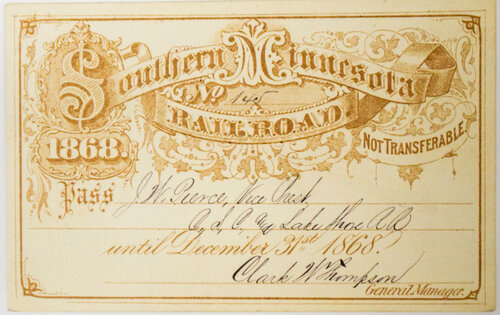 Southern Minnesota
No 145
RAILROAD
1868.
NOT TRANSFERABLE.
Pass J. W. Pierce, Vice Prest.
Lake Shore RR
until December 31st 1868.
Clark W Thompson
General Manager.